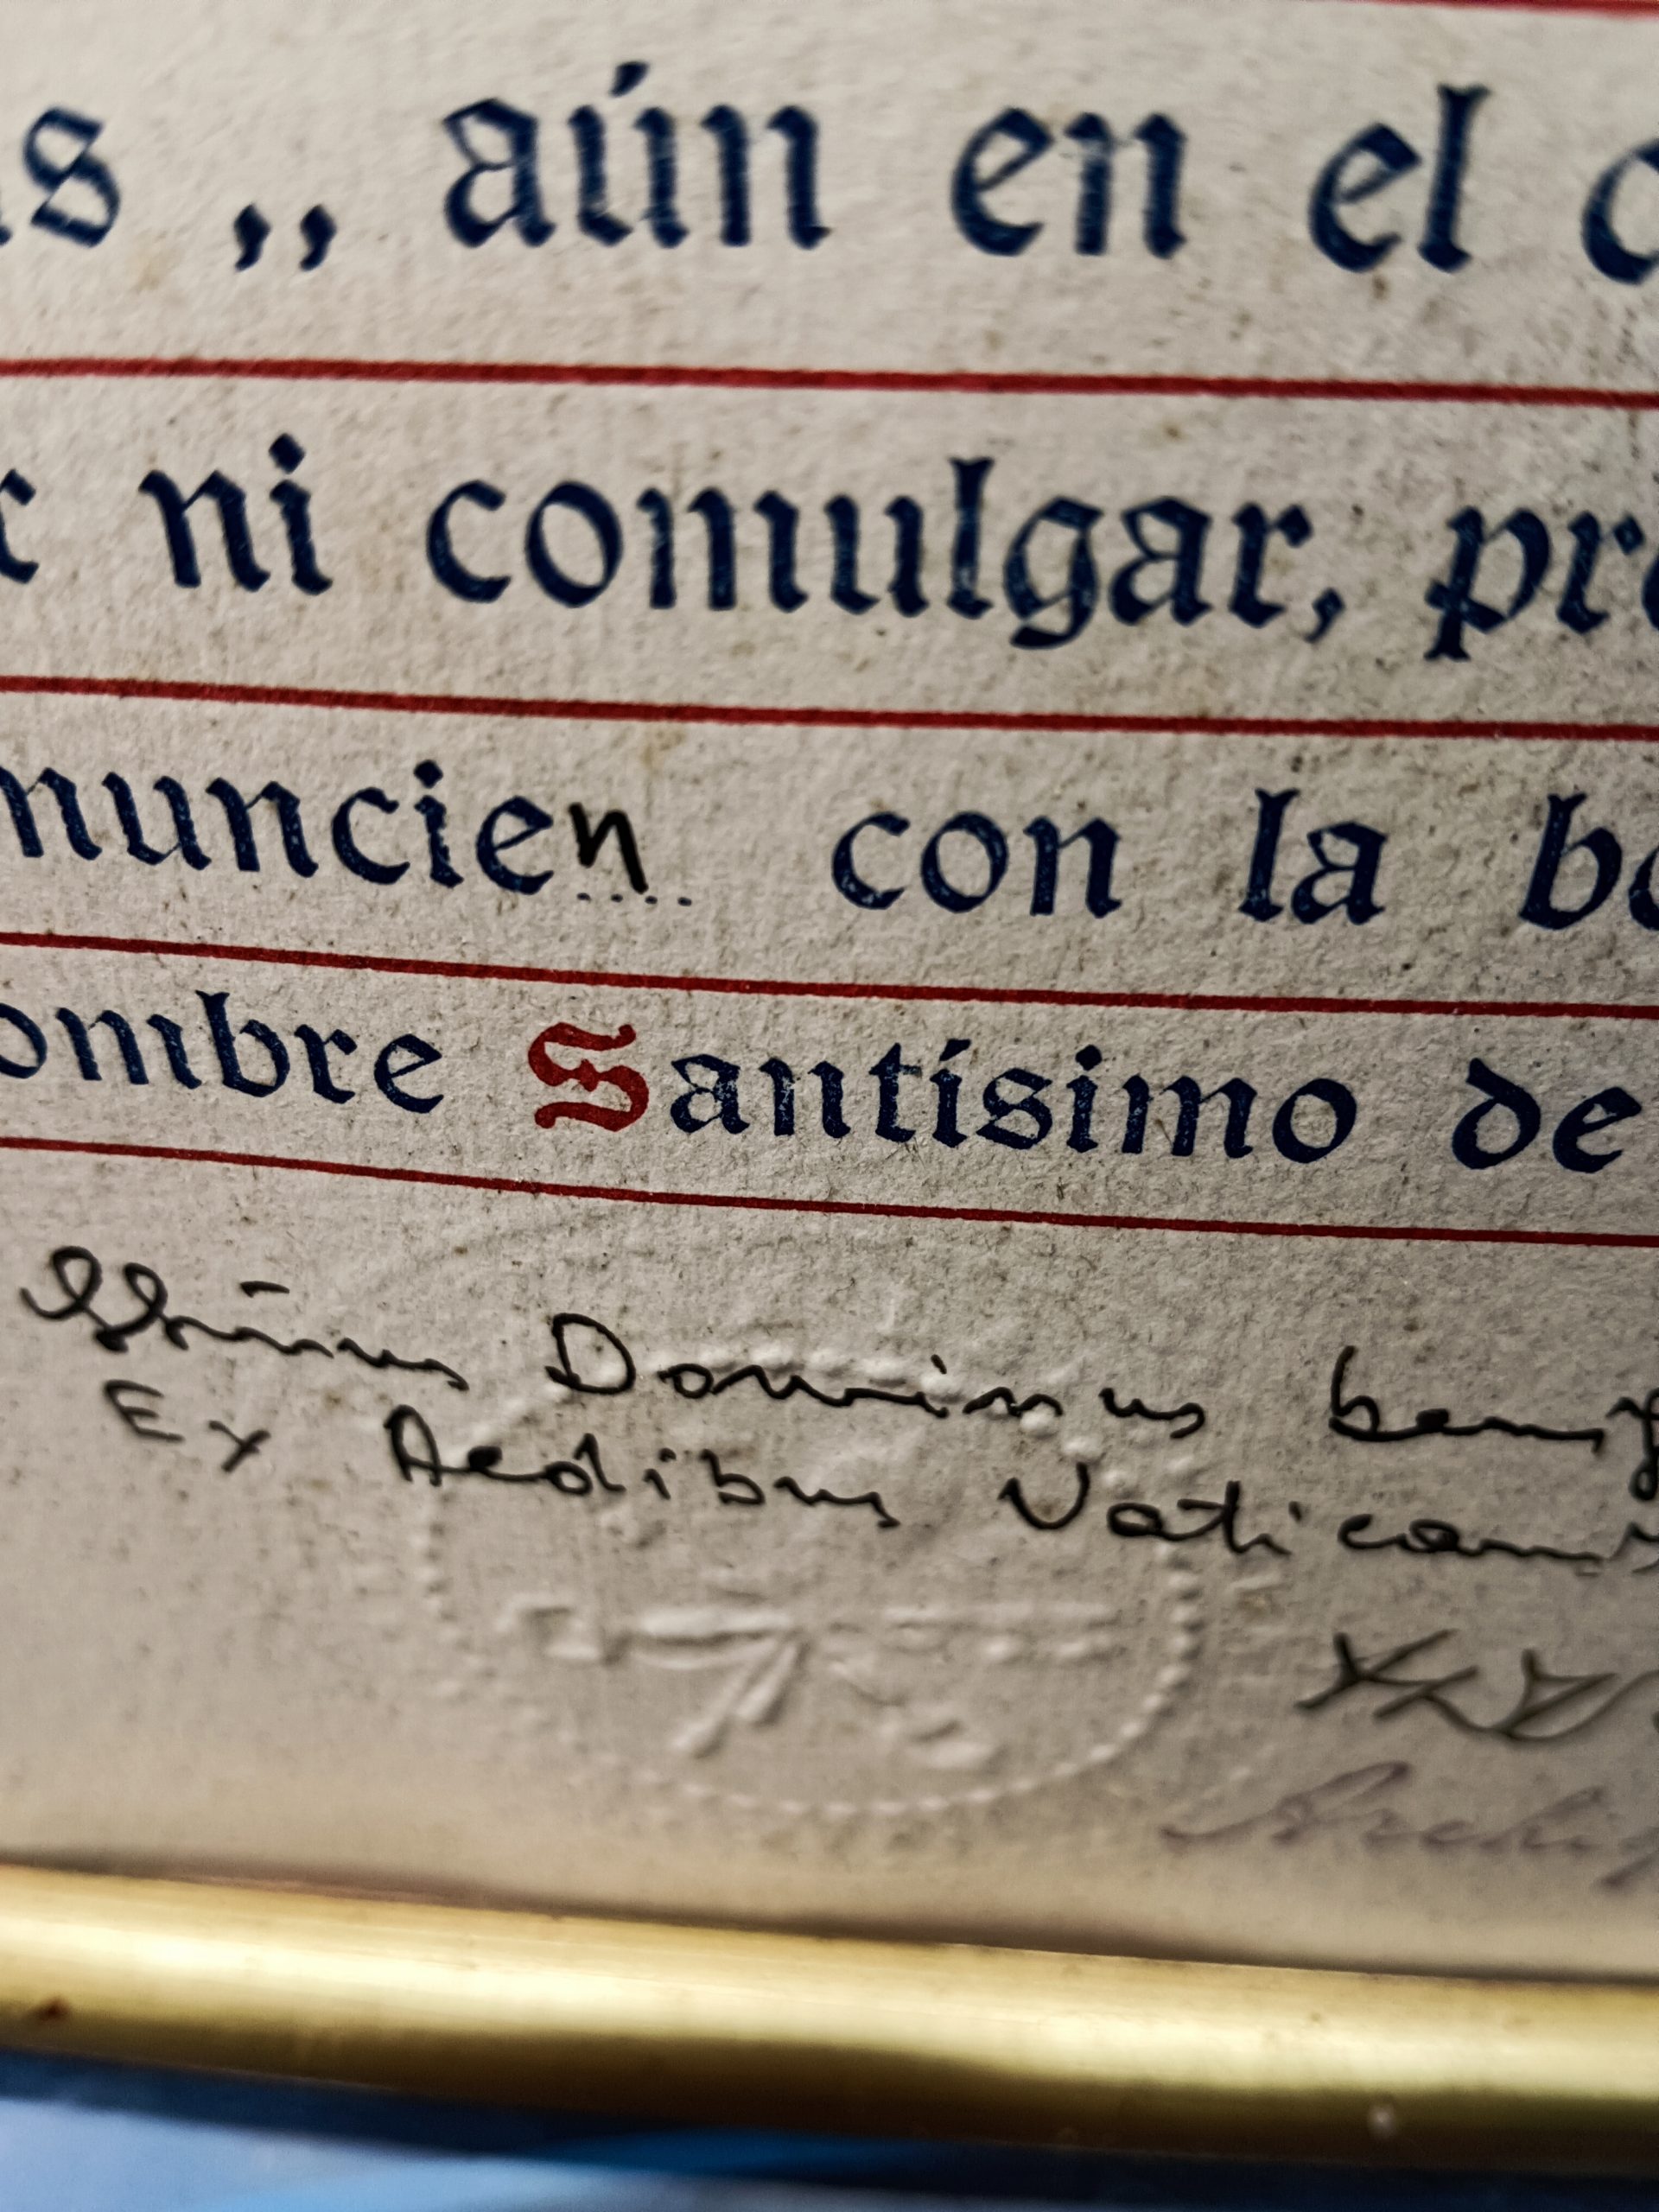 s ,, aún en el
ni comulgar,
nuncien con la
ombre Santísimo de
Dominus
Ex Aedibus Vaticanis